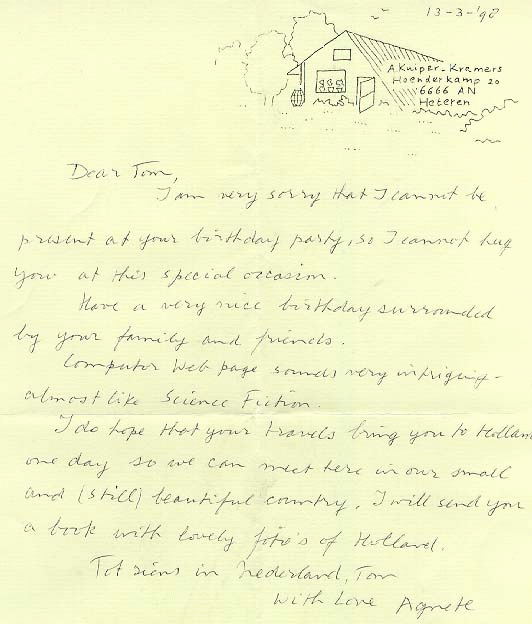 13-3-'98
A Kuiper-Kramers
Hoenderkamp 20
6666 AN
Heteren
Dear Tom,
I am very sorry that I cannot be
present at your birthday party, so I cannot hug
you at this special occasion.
Have a very nice birthday surrounded
by your family and friends.
Computer Web page sounds very intriguing-
almost like Science Fiction.
I do hope that your travels bring you to Holland
one day so we can meet here in our small
and (still) beautiful country. I will send you
a book with lovely foto's of Holland.
Tot ziens in Nederland, Tom
With Love Agnete